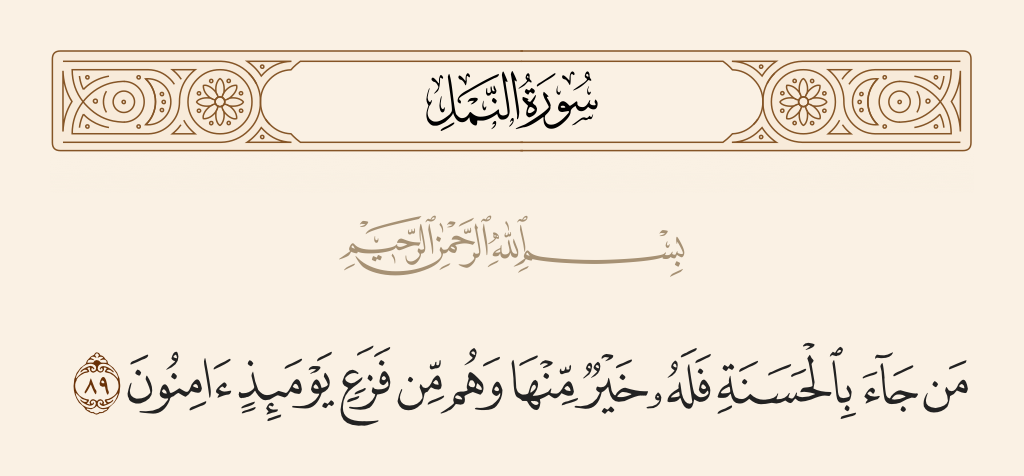 سُورَةُ النَّمۡلِ
بِسۡمِ ٱللَّهِ ٱلرَّحۡمَٰنِ ٱلرَّحِيمِ
مَن جَآءَ بِٱلۡحَسَنَةِ فَلَهُۥ خَيۡرٞ مِّنۡهَا وَهُم مِّن فَزَعٖ يَوۡمَئِذٍ ءَامِنُونَ ٨٩